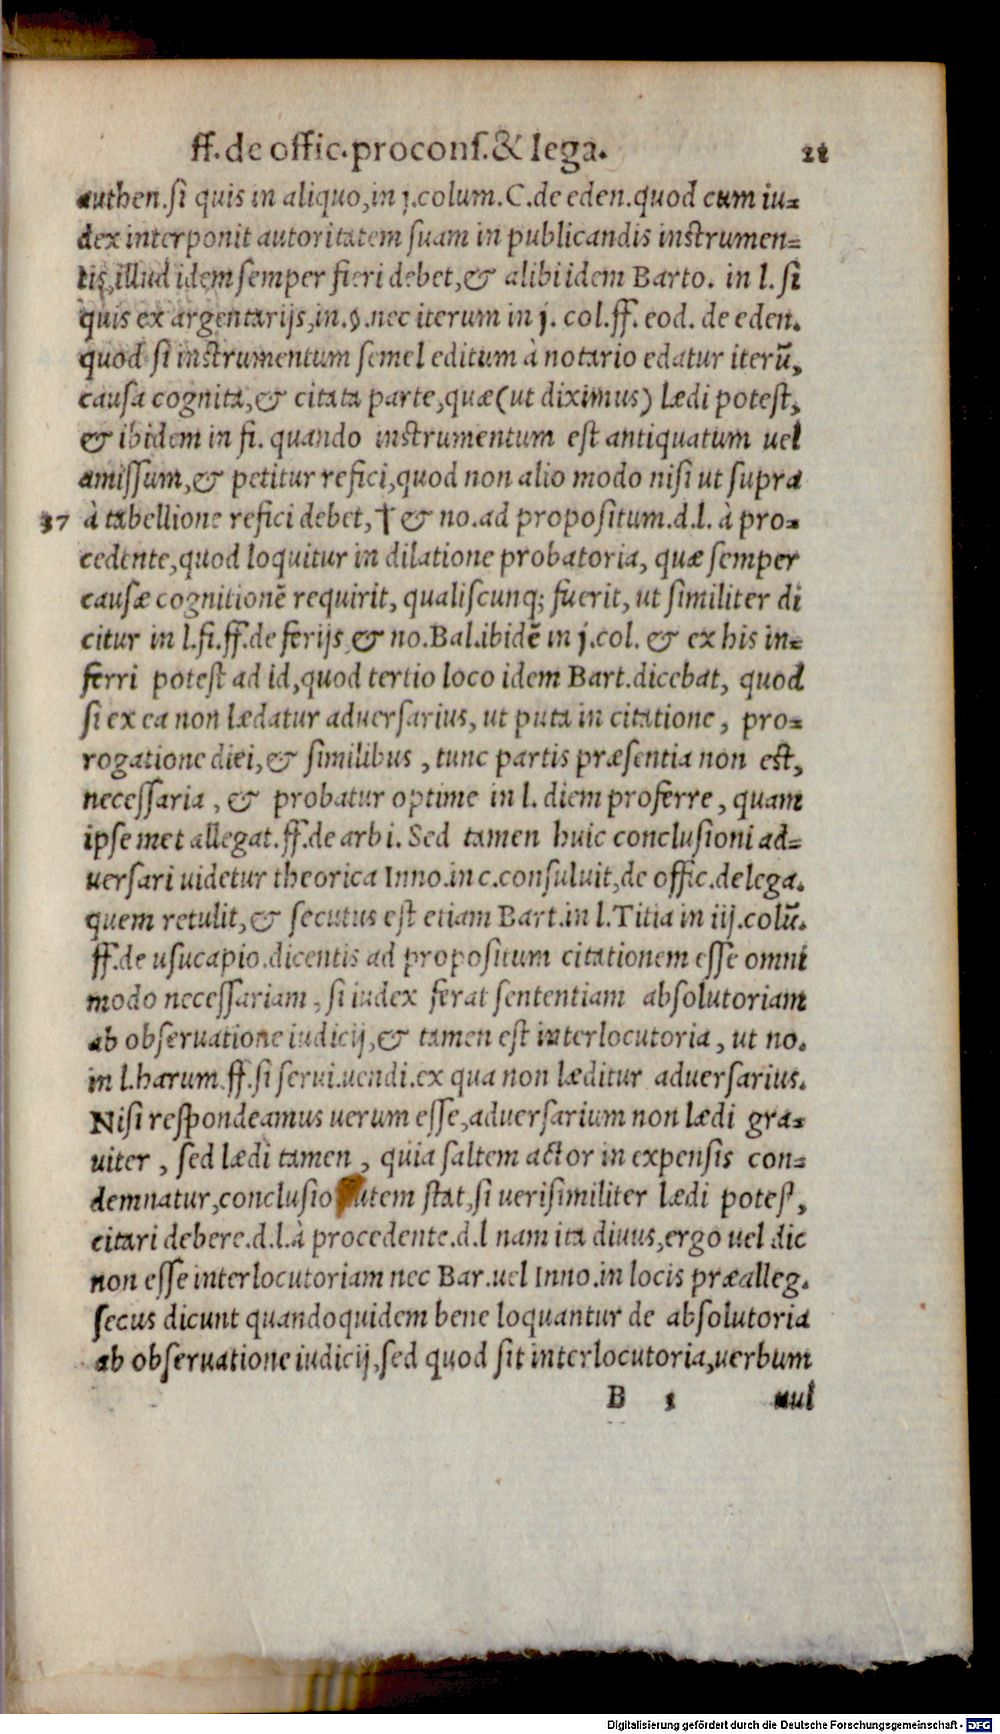 ff. de offic. procons. & lega. 21
authen. si quis in aliquo, in j. colum. C. de eden. quod cum iu=
dex interponit autoritatem suam in publicandis instrumen=
tis, illud idem semper fieri debet, & alibi idem Barto. in l. si
quis ex argentarijs, in. §. nec iterum in j. col. ff. eod. de eden.
quod si instrumentum semel editum à notario edatur iterū,
causa cognita, & citata parte, quæ (ut diximus) lædi potest,
& ibidem in fi. quando instrumentum est antiquatum uel
amissum, & petitur refici, quod non alio modo nisi ut supra
37 à tabellione refici debet, † & no. ad propositum. d. l. à pro=
cedente, quod loquitur in dilatione probatoria, quæ semper
causæ cognitionē requirit, qualiscunq; fuerit, ut similiter di
citur in l. fi. ff. de ferijs & no. Bal. ibidē in j. col. & ex his in=
ferri potest ad id, quod tertio loco idem Bart. dicebat, quod
si ex ea non lædatur aduersarius, ut puta in citatione, pro=
rogatione diei, & similibus, tunc partis præsentia non est,
necessaria, & probatur optime in l. diem proferre, quam
ipse met allegat. ff. de arbi. Sed tamen huic conclusioni ad=
uersari uidetur theorica Inno. in c. consuluit, de offic. delega.
quem retulit, & secutus est etiam Bart. in l. Titia in iij. colū.
ff. de usucapio. dicentis ad propositum citationem esse omni
modo necessariam, si iudex ferat sententiam absolutoriam
ab obseruatione iudicij, & tamen est interlocutoria, ut no.
in l. harum. ff. si serui. uendi. ex qua non læditur aduersarius.
Nisi respondeamus uerum esse, aduersarium non lædi gra=
uiter, sed lædi tamen, quia saltem actor in expensis con=
demnatur, conclusio autem stat, si uerisimiliter lædi potest,
citari debere. d. l. à procedente. d. l nam ita diuus, ergo uel dic
non esse interlocutoriam nec Bar. uel Inno. in locis præalleg.
secus dicunt quandoquidem bene loquantur de absolutoria
ab obseruatione iudicij, sed quod sit interlocutoria, uerbum
B nul
Digitalisierung gefördert durch die Deutsche Forschungsgemeinschaft - DFG